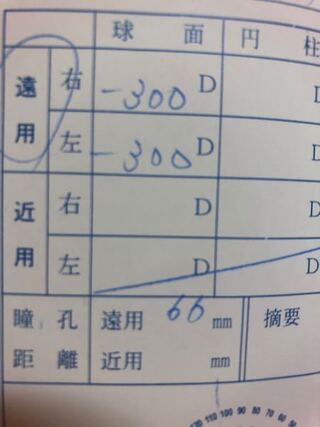 球 面 円 柱
遠用 右 -300 D D
左 -300 D D
近用 右 D D
左 D D
瞳孔距離 遠用 66 mm 摘要
近用 mm
120 110 100 90 80 70 60